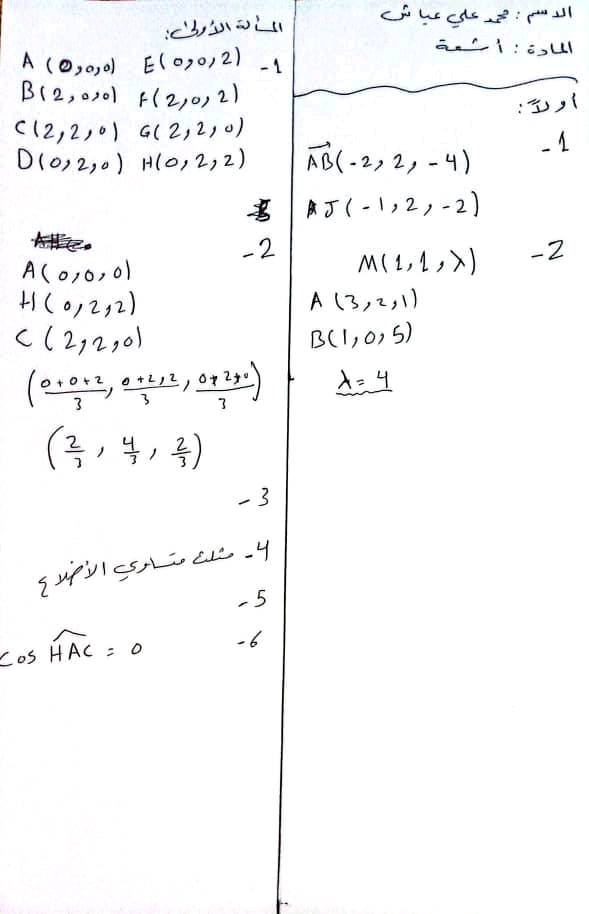 الاسم : محمد علي عباس
المادة : أشعة
أولاً :
1 -
AB(-2, 2, -4)
AJ(-1, 2, -2)
2 -
M(1, 1, λ)
A(3, 2, 1)
B(1, 0, 5)
λ = 4
المسألة الأولى :
1 -
A(0,0,0) E(0,0,2)
B(2,0,0) F(2,0,2)
C(2,2,0) G(2,2,0)
D(0,2,0) H(0,2,2)
2 -
A(0,0,0)
H(0,2,2)
C(2,2,0)
(0+0+2/3, 0+2,2/3, 0+2+0/3)
(2/3, 4/3, 2/3)
3 -
4 - مثلث متساوي الأضلاع
5 -
6 -
cos HAC = 0